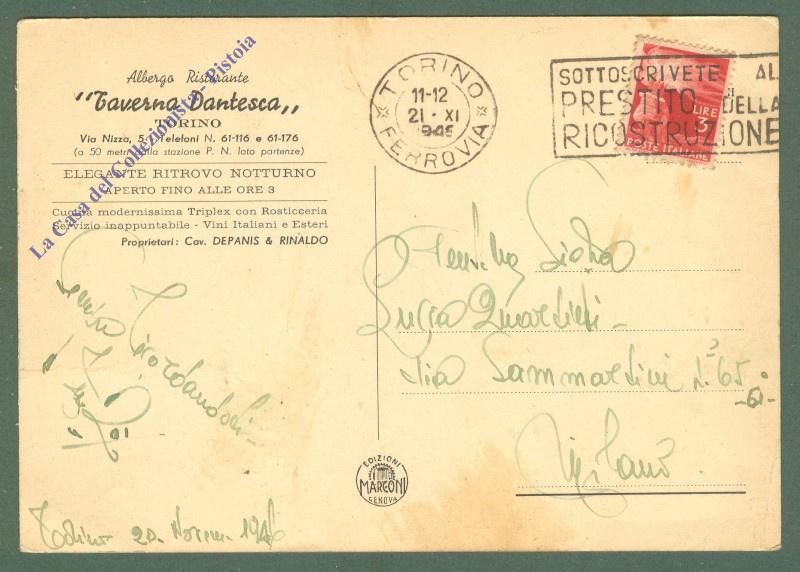 Albergo Ristorante
"Taverna Dantesca,,
TORINO
Via Nizza, 5 - Telefoni N. 61-116 e 61-176
(a 50 metri dalla stazione P. N. lato partenze)
ELEGANTE RITROVO NOTTURNO
APERTO FINO ALLE ORE 3
Cucina modernissima Triplex con Rosticceria
Servizio inappuntabile - Vini Italiani e Esteri
Proprietari: Cav. DEPANIS & RINALDO
La Casa del Collezionista - Pistoia
TORINO
11-12
21 · XI
1946
FERROVIA
SOTTOSCRIVETE AL
PRESTITO DELLA
RICOSTRUZIONE
LIRE
3
POSTE ITALIANE
Luisa
Via Sammartini N. 65
61
Milano
Sempre ricordandoti
Torino 20 Novem. 1946
EDIZIONI
MARCONI
GENOVA